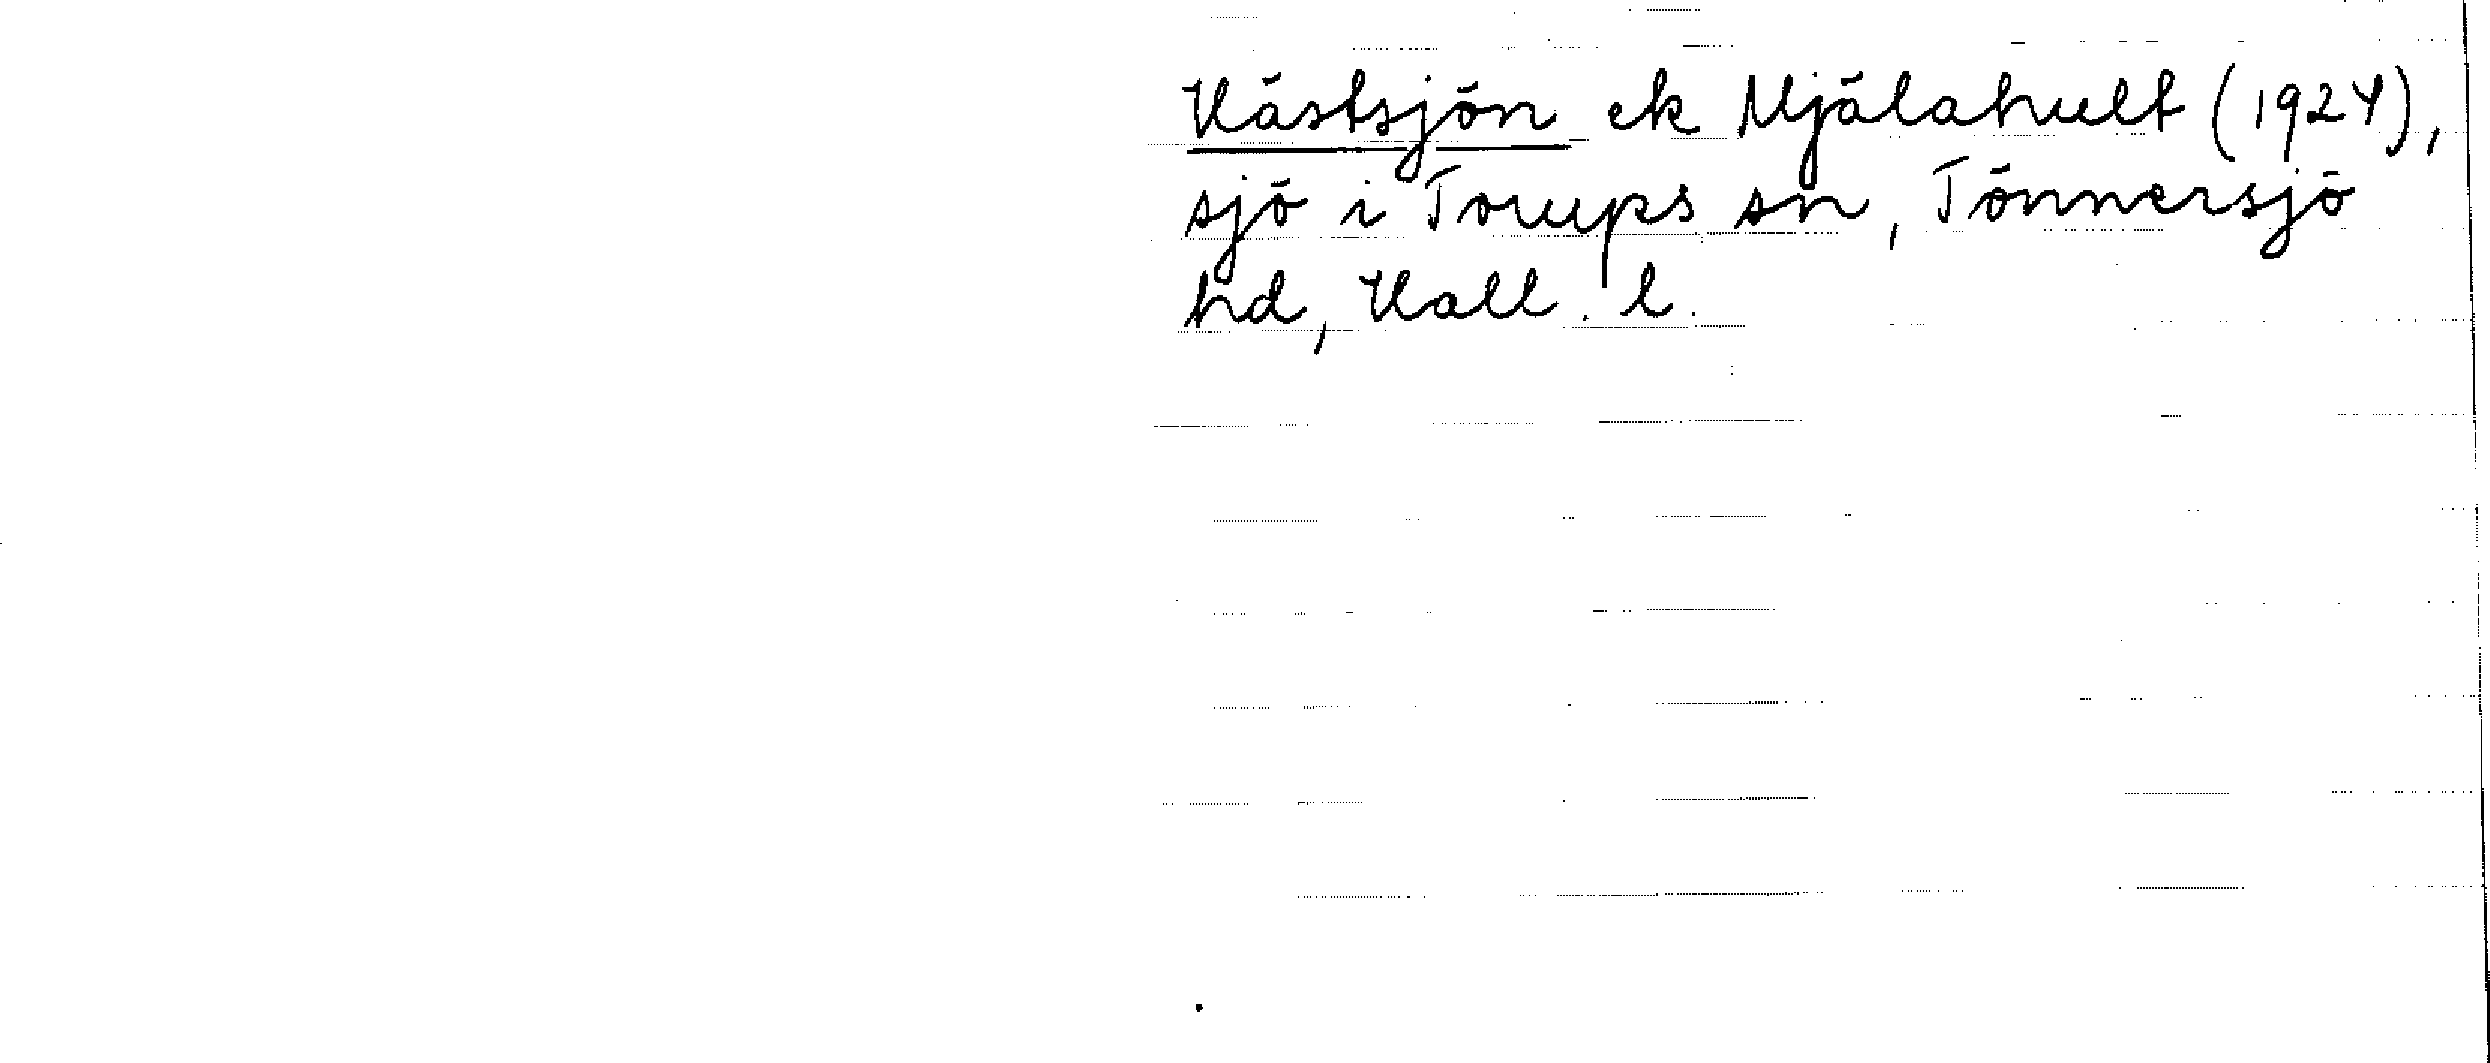 Hästsjön ek Mjälahult (1924),
sjö i Torups sn, Tönnersjö
hd, Hall. l.